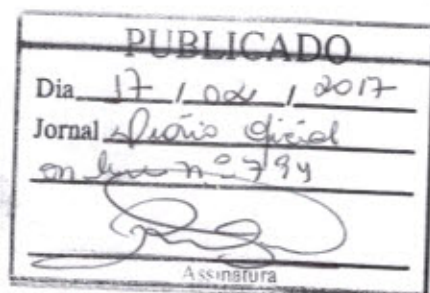 PUBLICADO
Dia 17 / 02 / 2017
Jornal Diário Oficial
on line nº 794
Assinatura